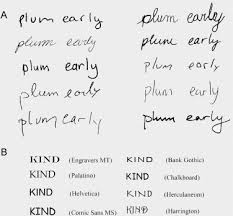 A
plum early plum early
plum early plum early
plum early plum early
plum early plum early
plum early plum early
B
KIND (Engravers MT) KIND (Bank Gothic)
KIND (Palatino) KIND (Chalkboard)
KIND (Helvetica) KIND (Herculaneum)
KIND (Comic Sans MS) KIND (Harrington)